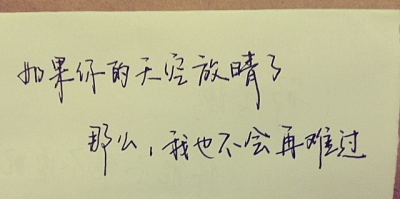 如果你的天空放晴了
那么，我也不会再难过